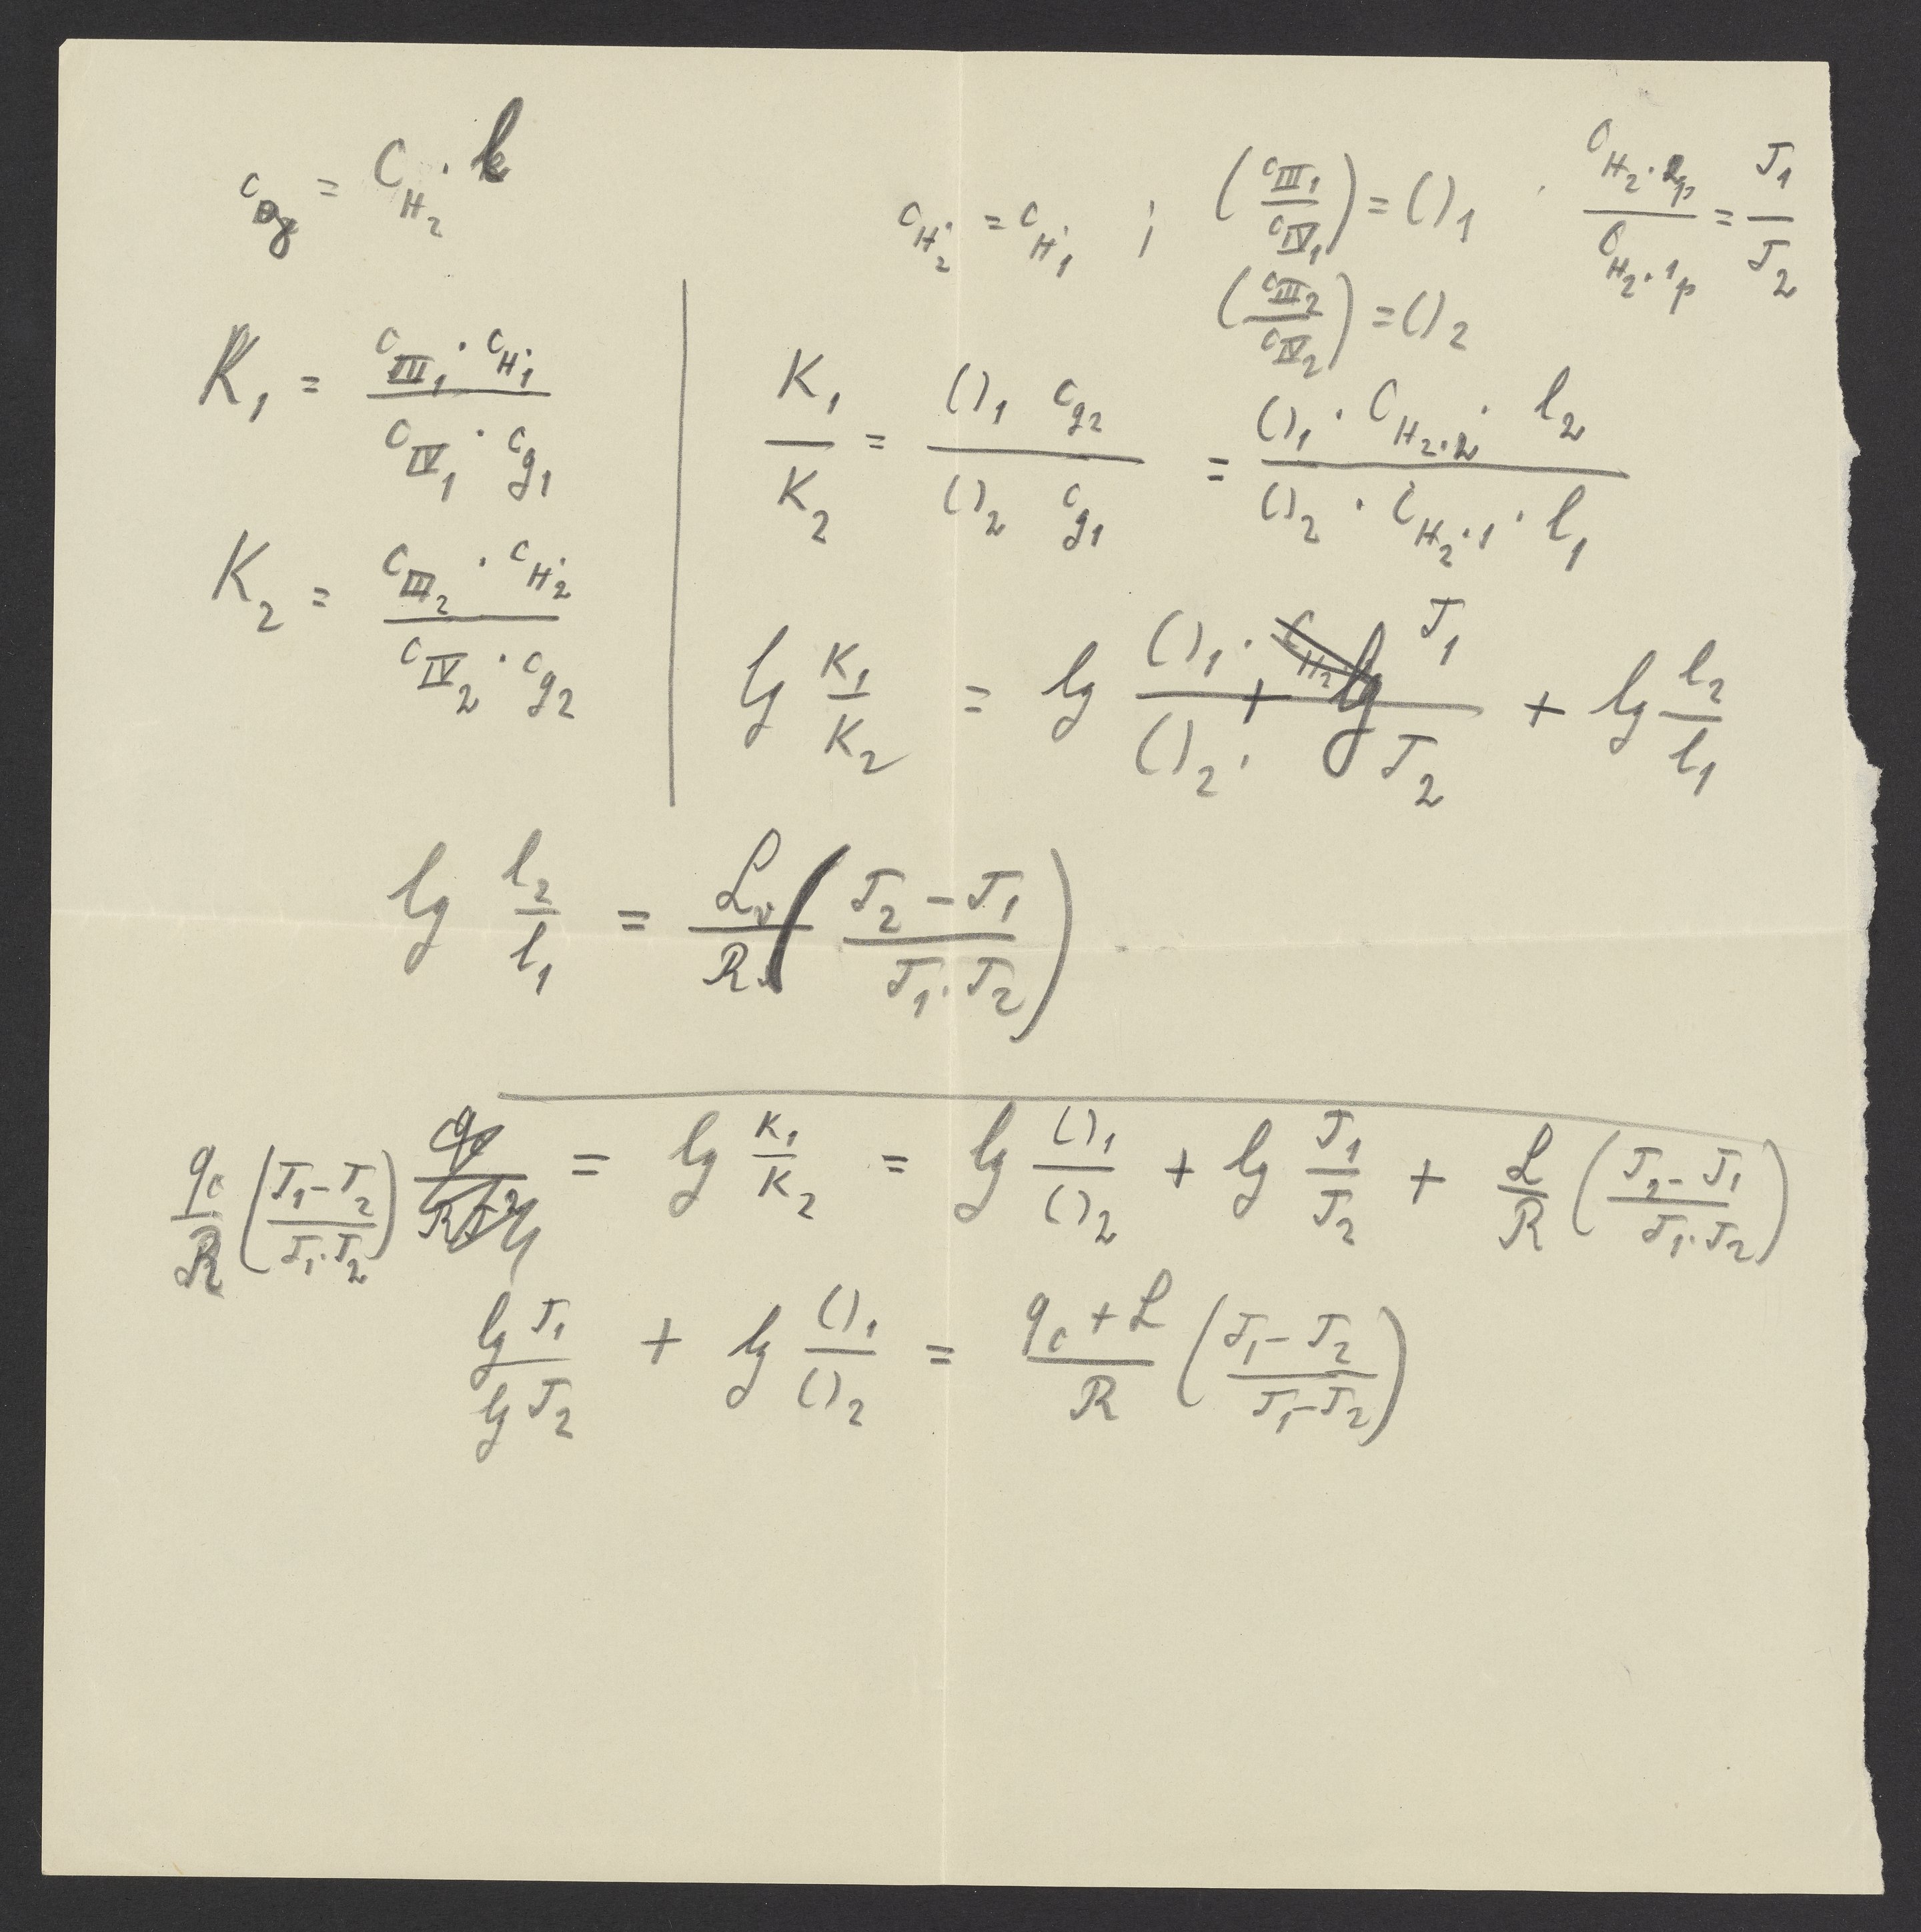 c_g = C_{H_2} · l
c_{H^·_2} = c_{H^·_1} ; (c_{III_1}/c_{IV_1}) = ()_1 · C_{H_2·2p}/C_{H_2·1p} = T_1/T_2
(c_{III_2}/c_{IV_2}) = ()_2
K_1 = c_{III_1} · c_{H^·_1} / c_{IV_1} · c_{g1}
K_2 = c_{III_2} · c_{H^·_2} / c_{IV_2} · c_{g2}
K_1/K_2 = ()_1 c_{g2} / ()_2 c_{g1} = ()_1 · C_{H_2·2} · l_2 / ()_2 · C_{H_2·1} · l_1
lg K_1/K_2 = lg ()_1 · T_1 / ()_2 · T_2 + lg l_2/l_1
lg l_2/l_1 = L_v/R (T_2 - T_1 / T_1 · T_2)
q_c/R (T_1 - T_2 / T_1 · T_2) = lg K_1/K_2 = lg ()_1/()_2 + lg T_1/T_2 + L/R (T_2 - T_1 / T_1 · T_2)
lg T_1 / lg T_2 + lg ()_1/()_2 = q_c + L / R (T_1 - T_2 / T_1 - T_2)